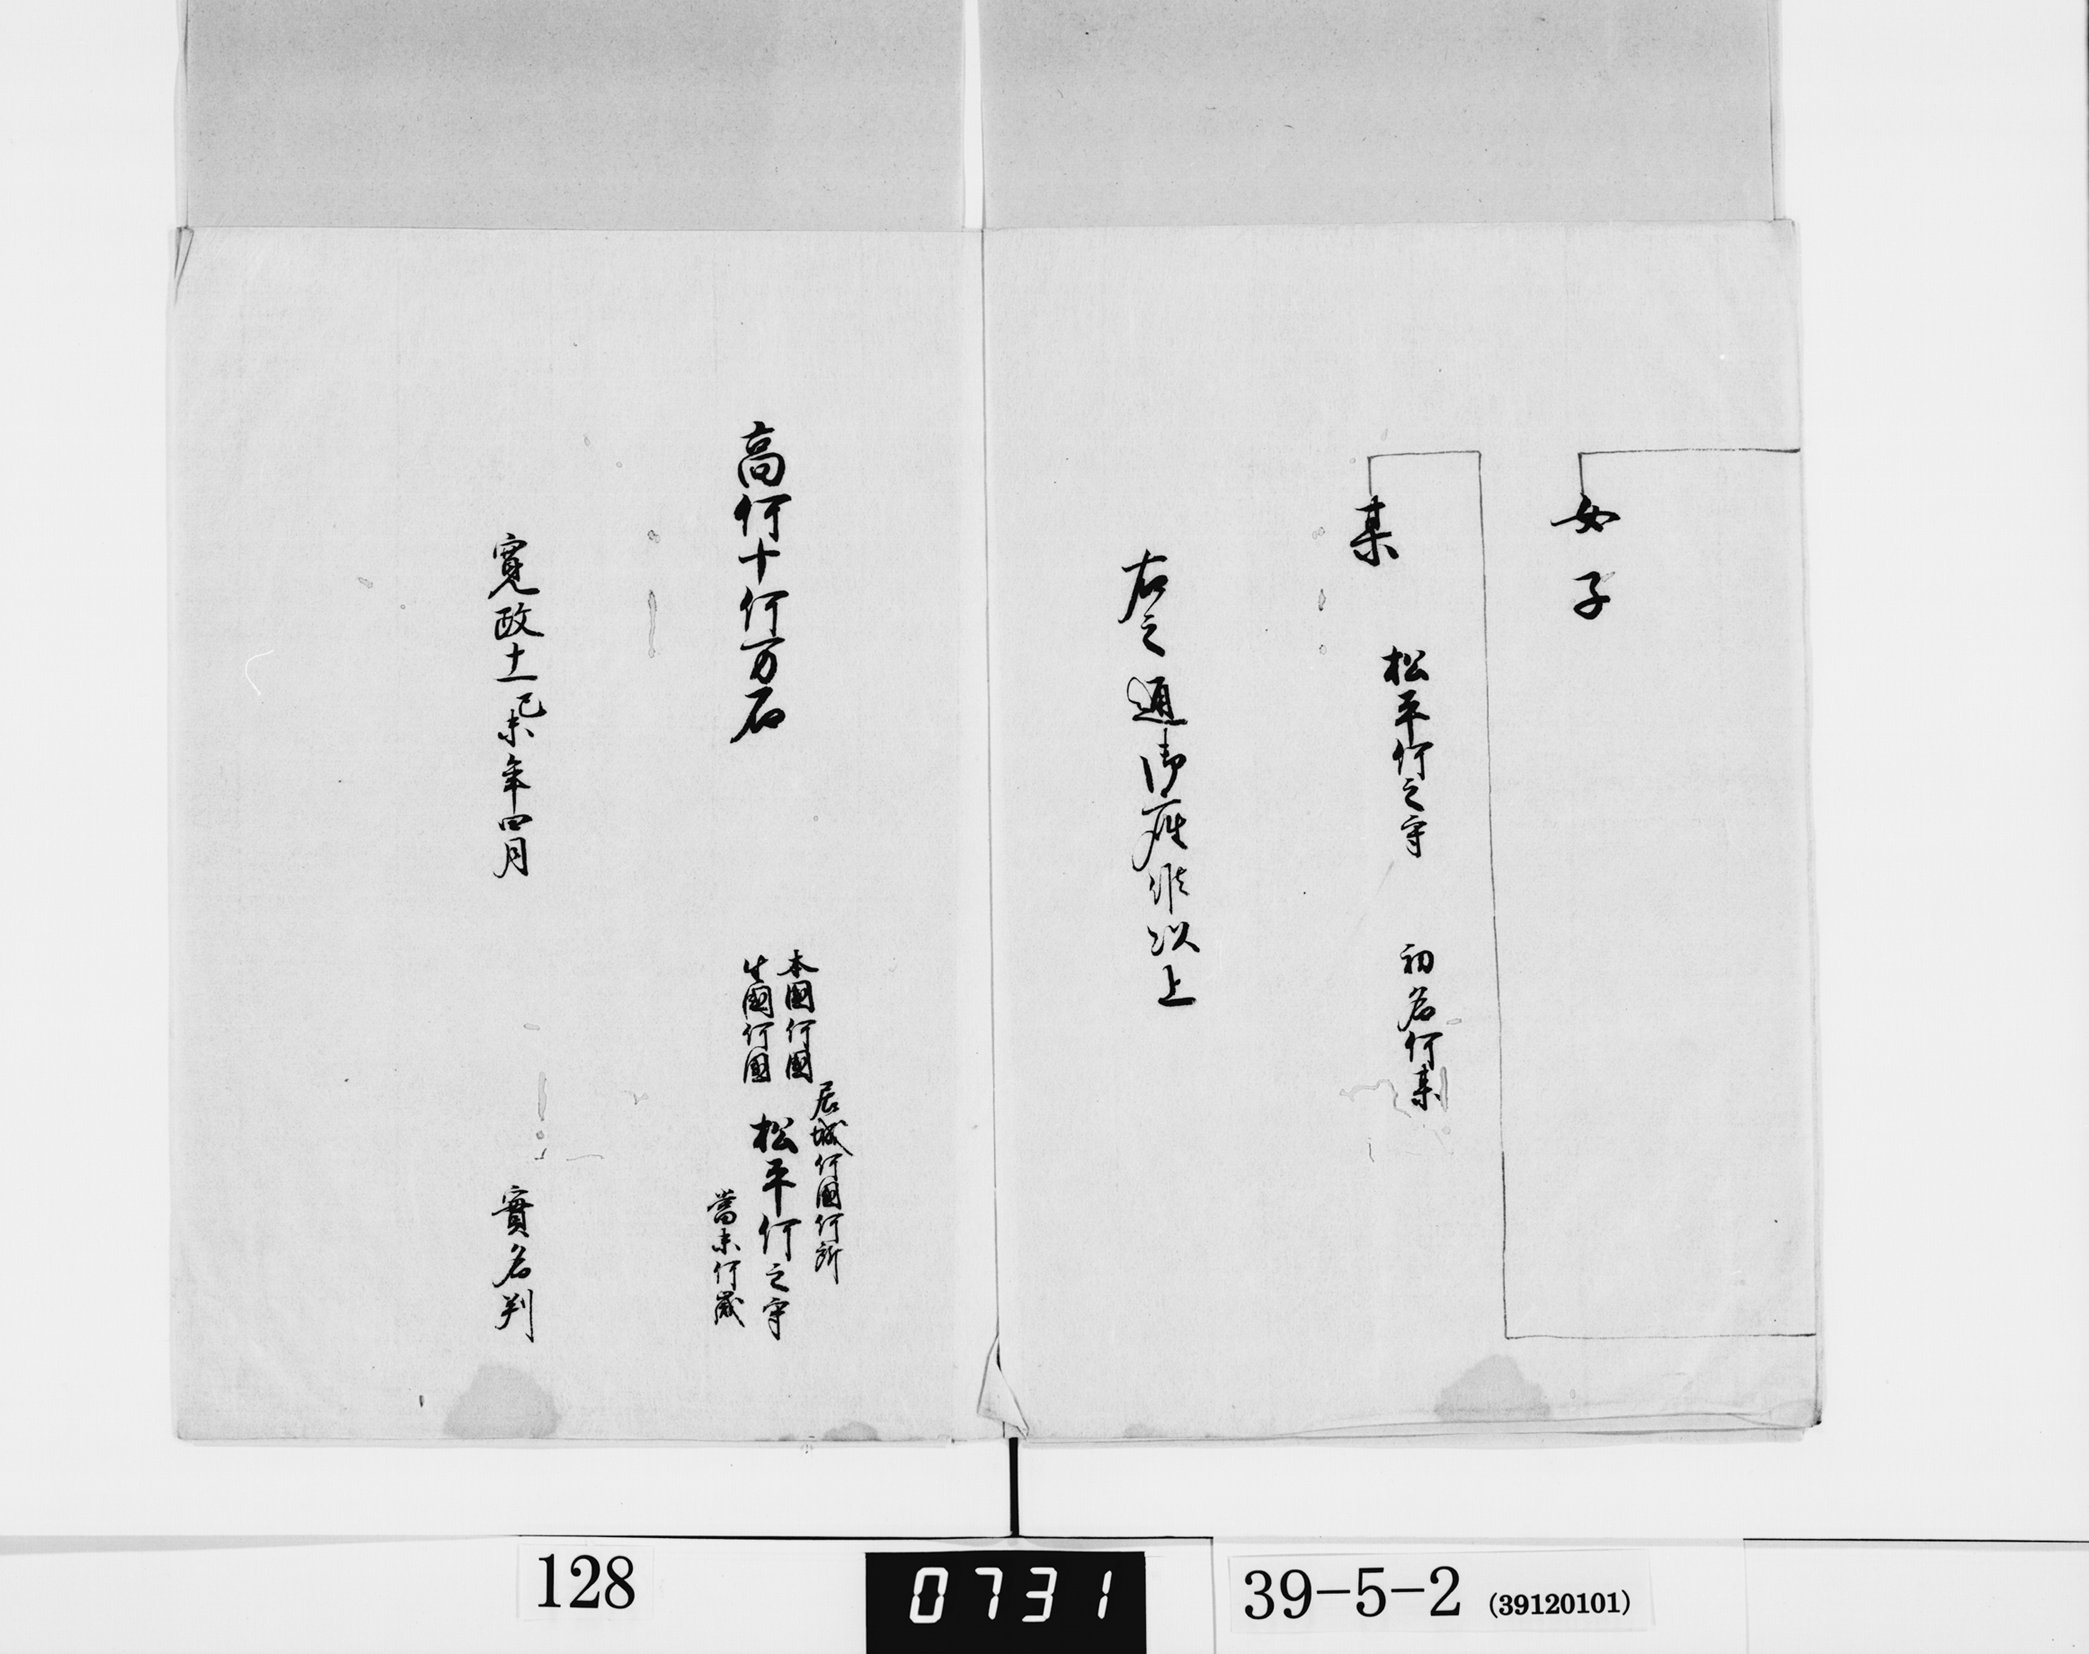 女子
某
松平何之守
初名何某
右之通御座候以上
高何十何万石
本國何國
生國何國
居城何國何所
松平何之守
當未何歳
寛政十一己未年四月
實名判
128
0731
39-5-2 (39120101)